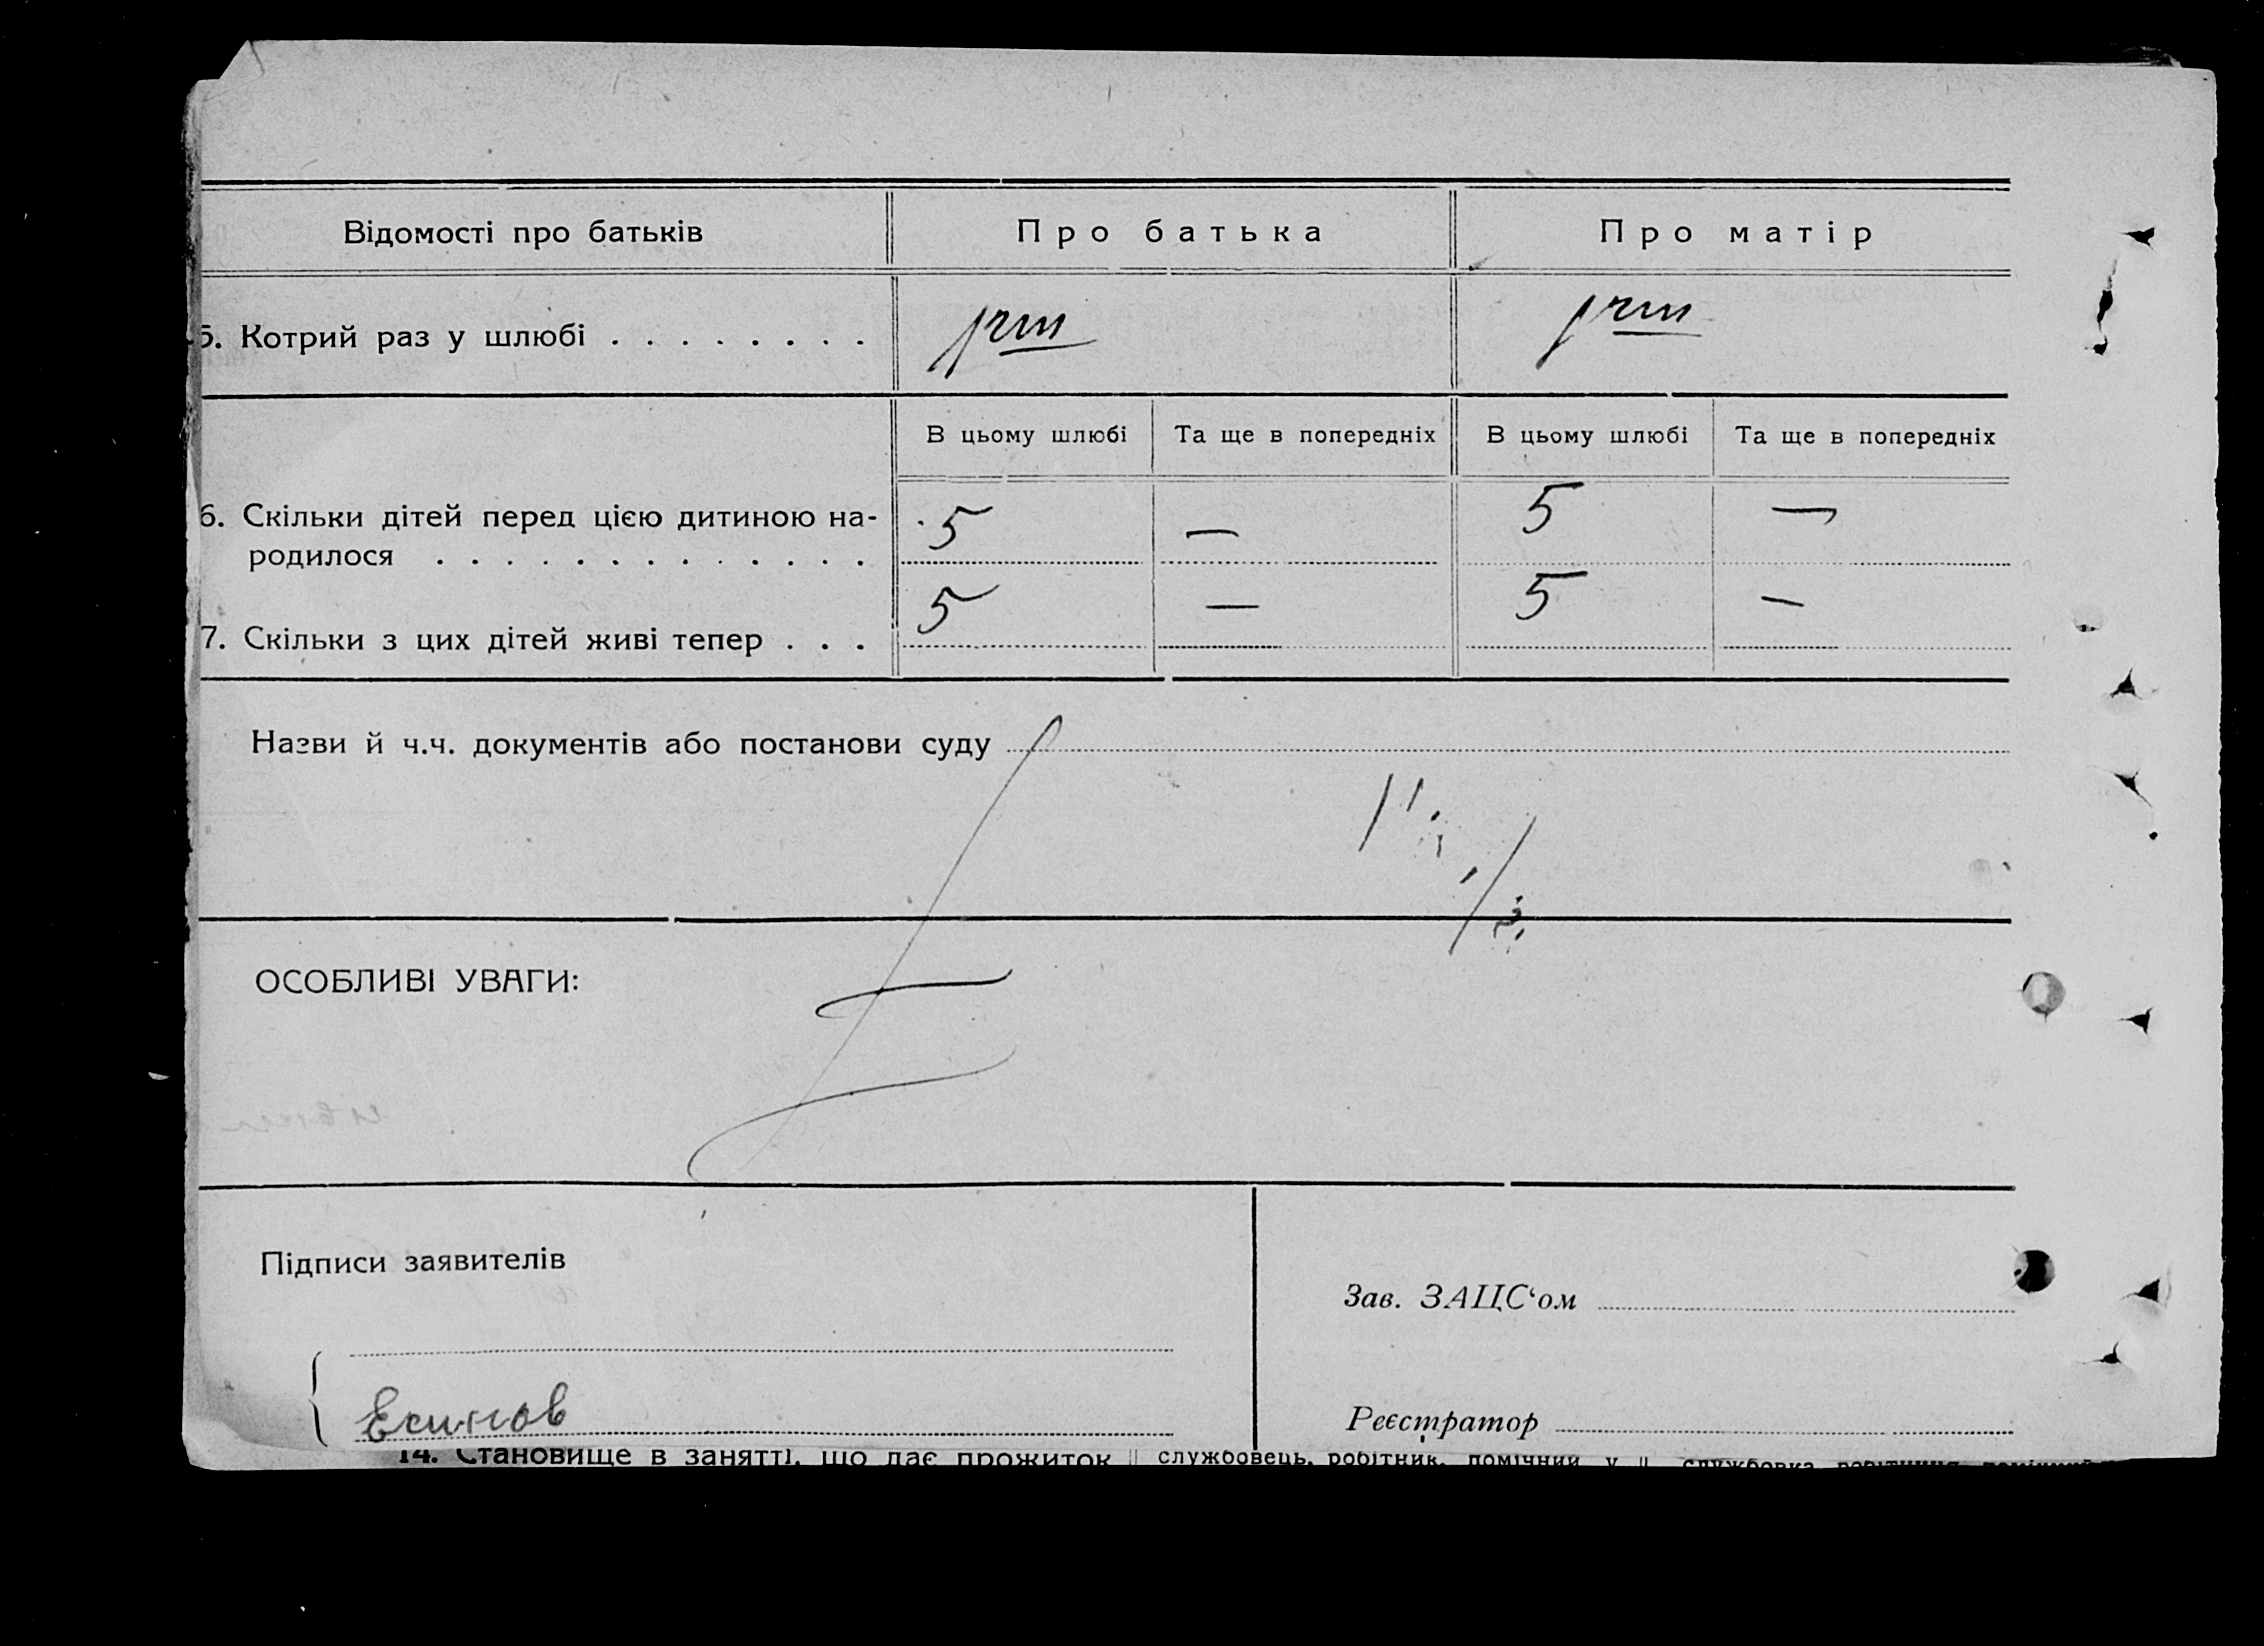 Відомості про батьків Про батька Про матір
5. Котрий раз у шлюбі . . . . . . . .
В цьому шлюбі Та ще в попередніх В цьому шлюбі Та ще в попередніх
6. Скільки дітей перед цією дитиною на-
родилося . . . . . . . . . . . . . 5 — 5 —
7. Скільки з цих дітей живі тепер . . . 5 — 5 —
Назви й ч.ч. документів або постанови суду
ОСОБЛИВІ УВАГИ:
Підписи заявителів
Зав. ЗАЦС‘ом
Реєстратор
14. Становище в занятті, що дає прожиток службовець, робітник, помічний у службовка